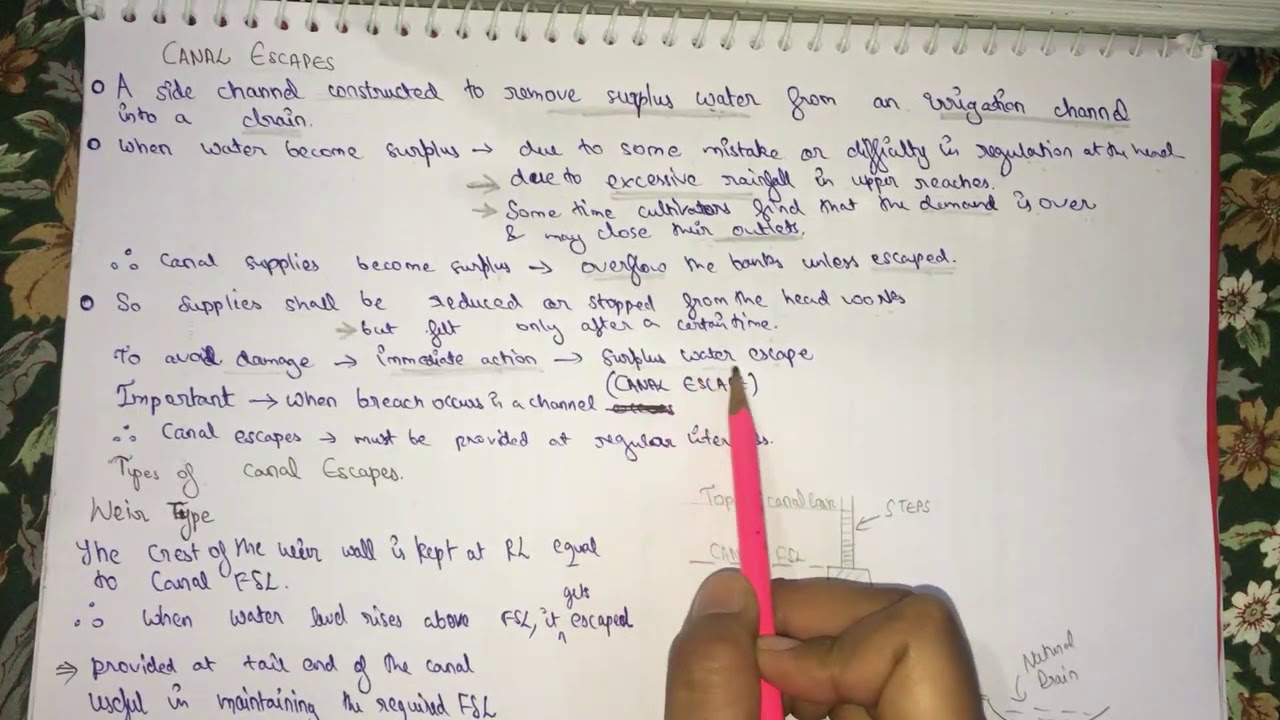 CANAL ESCAPES
A side channel constructed to remove surplus water from an irrigation channel
into a drain.
When water become surplus → due to some mistake or difficulty in regulation at the head
→ due to excessive rainfall in upper reaches.
→ Some time cultivators find that the demand is over
& may close their outlets.
∴ Canal supplies become surplus → overflow the banks unless escaped.
So supplies shall be reduced or stopped from the head works
→ but felt only after a certain time.
To avoid damage → immediate action → Surplus water escape
(CANAL
Important → When breach occurs in a channel
∴ Canal escapes → must be provided at regular
Types of Canal Escapes.
Weir Type
The Crest of the weir wall is kept at RL equal
to Canal FSL.
∴ When water level rises above FSL, it gets escaped
⇒ provided at tail end of the canal
Useful in maintaining the required FSL
Top canal
STEPS
FSL
Natural
Drain